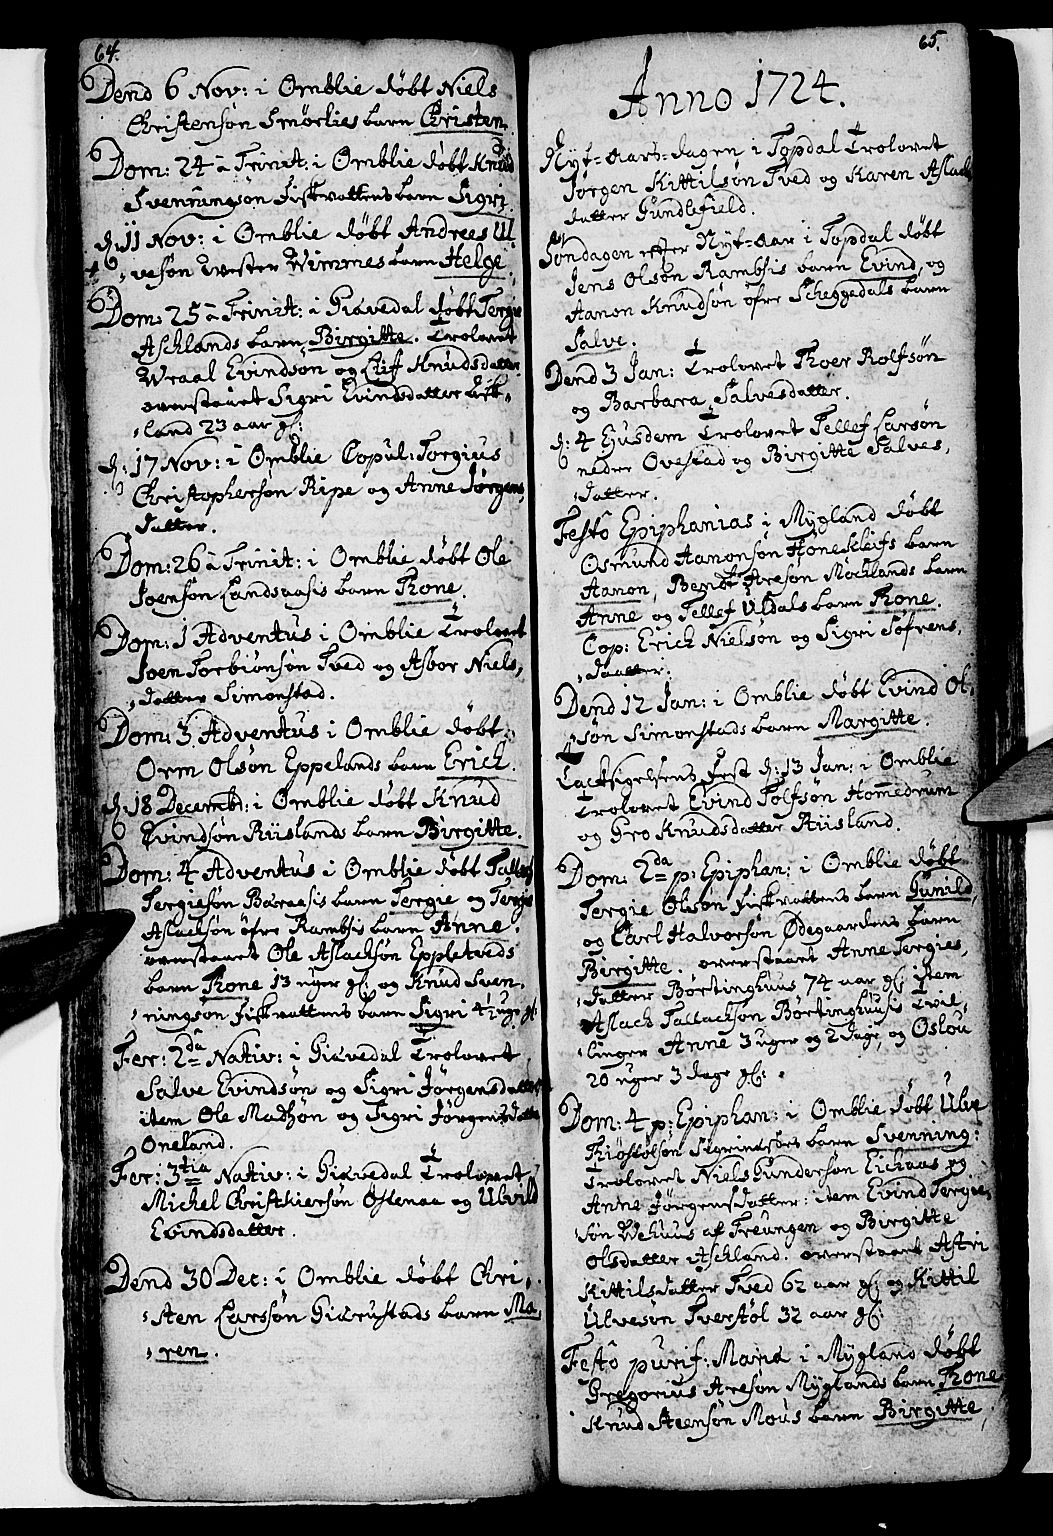 64.
Dend 6 Nov: i Omblie døbt Niels
Christensøn Smørlies barn Christen
Dom: 24 à Trinit: i Omblie døbt Knud
Svenningsøn Fiskvattens barn Sigri,
d: 11 Nov: i Omblie døbt Andrees Ul-
vesøn Wester Wimmes barn Helge.
Dom: 25 à Trinit: i Giøvedal døbt Tergie
Aschlands barn Birgitte. Trolovet
Wraal Evindsøn og Lif Knudsdatter
overstaaet Sigri Evindsdatter
land 23 aar gl:
d: 17 Nov: i Omblie Copul: Torgius
Christophersøn Ripe og Anne Jørgens,
datter.
Dom: 26 à Trinit: i Omblie døbt Ole
Joensøn Landsaasis barn Tone.
Dom: 1 Adventus i Omblie Trolovet
Joen Torbiønsøn Tved og Asbor Niels,
datter Simonstad.
Dom: 3 Adventus i Omblie døbt
Orm Olsøn Eppelands barn Erich.
d: 18 Decembr: i Omblie døbt Knud
Evindsøn Riislands barn Birgitte.
Dom: 4 Adventus i Omblie døbt Tallech
Tergiesøn Baraasis barn Tergie og Tergie
Aslachsøn øfre Rambsis barn Anne.
overstaaet Ole Aslachsøn Eppletveds
barn Tone 13 uger gl: og Knud Sven-
ningsøn Fiskvattens barn Sigri 4½ uge gl:
Fer: 2da Nativ: i Giøvedal Trolovet
Salve Evindsøn og Sigri Jørgensdatter
item Ole Madsøn og Sigri Jørgensdatter
Oneland.
Fer: 3tia Nativ: i Giøvedal Trolovet
Michel Christiersøn Ostenaa og Ulvild
Evindsdatter.
Dend 30 Dec: i Omblie døbt Chri,
sten Larssøn Giærustads barn Ma,
ren.
65.
Anno 1724.
Nyt-Aars-dagen i Topdal Trolovet
Jørgen Kittilsøn Tved og Karen Aslachs
datter Gundlefield.
Søndagen efter Nyt-Aar i Topdal døbt
Jens Olsøn Rambsis barn Evind, og
Aanon Knudsøn øfre Scheggedals barn
Salve.
Dend 3 Jan: Trolovet Thoer Rolfsøn
og Barbara Salvesdatter.
d: 4 Ejusdem Trolovet Tellef Larsøn
neder Ovestad og Birgitte Salves,
datter.
Festô Epiphanias i Mygland døbt
Osmund Aanonsøn Hønecleifs barn
Aanon, Bendt Aresøn Mochlands barn
Anne og Tellef Uldals barn Tone.
Cop: Erich Nielsøn og Sigri Søfrens,
daatter.
Dend 12 Jan: i Omblie døbt Evind Ol-
søn Simonstads barn Margitte.
Tacksigelsens Fest d: 13 Jan: i Omblie
Trolovet Evind Tolfsøn Hommedrum
og Gro Knudsdatter Riisland.
Dom: 2da p: Epiphan: i Omblie døbt
Tergie Olsøn Fiskvattens barn Gunild,
og Carl Halvorsøn Ødegaardens barn
Birgitte. overstaaet Anne Tergies,
datter Børtinghuus 74 aar gl: item
Aslach Tallachsøn Børtinghuusi Tvil-
linger Anne 3 uger og 2 Dage, og Oslou
20 uger 3 dage gl:
Dom: 4 p: Epiphan: i Omblie døbt Ulve
Kiøstolsøn barn Svenning:
Trolovet Niels Gundersøn Eichaas og
Anne Jørgensdatter: item Evind Tergie,
søn Wehuus af Treungen og Birgitte
Olsdatter Aschland. overstaaet Astri
Kittilsdatter Tved 62 aar gl: og Kittil
Ulvesøn Tverstøl 32 aar gl:
Festô purif: Mariæ i Mygland døbt
Gregorius Aresøn Myglands barn Tone
Knud Steensøn Mous barn Birgitte,